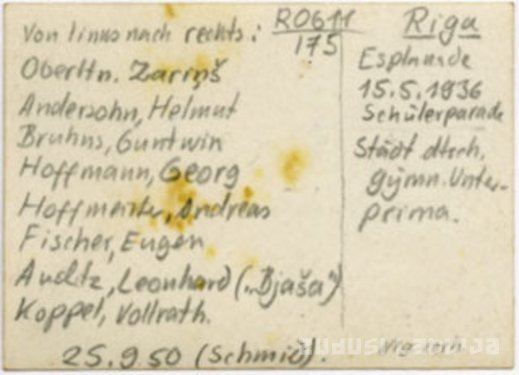 Von links nach rechts:
Oberltn. Zariņš
Andersohn, Helmut
Bruhns, Guntwin
Hoffmann, Georg
Hoffmeister, Andreas
Fischer, Eugen
Auditz, Leonhard („Bjaša“)
Koppel, Vollrath.
25.9.50 (Schmid).
R0611
175
Riga
Esplanade
15.5.1936
Schülerparade
Städt dtsch.
gymn. Unter-
prima.